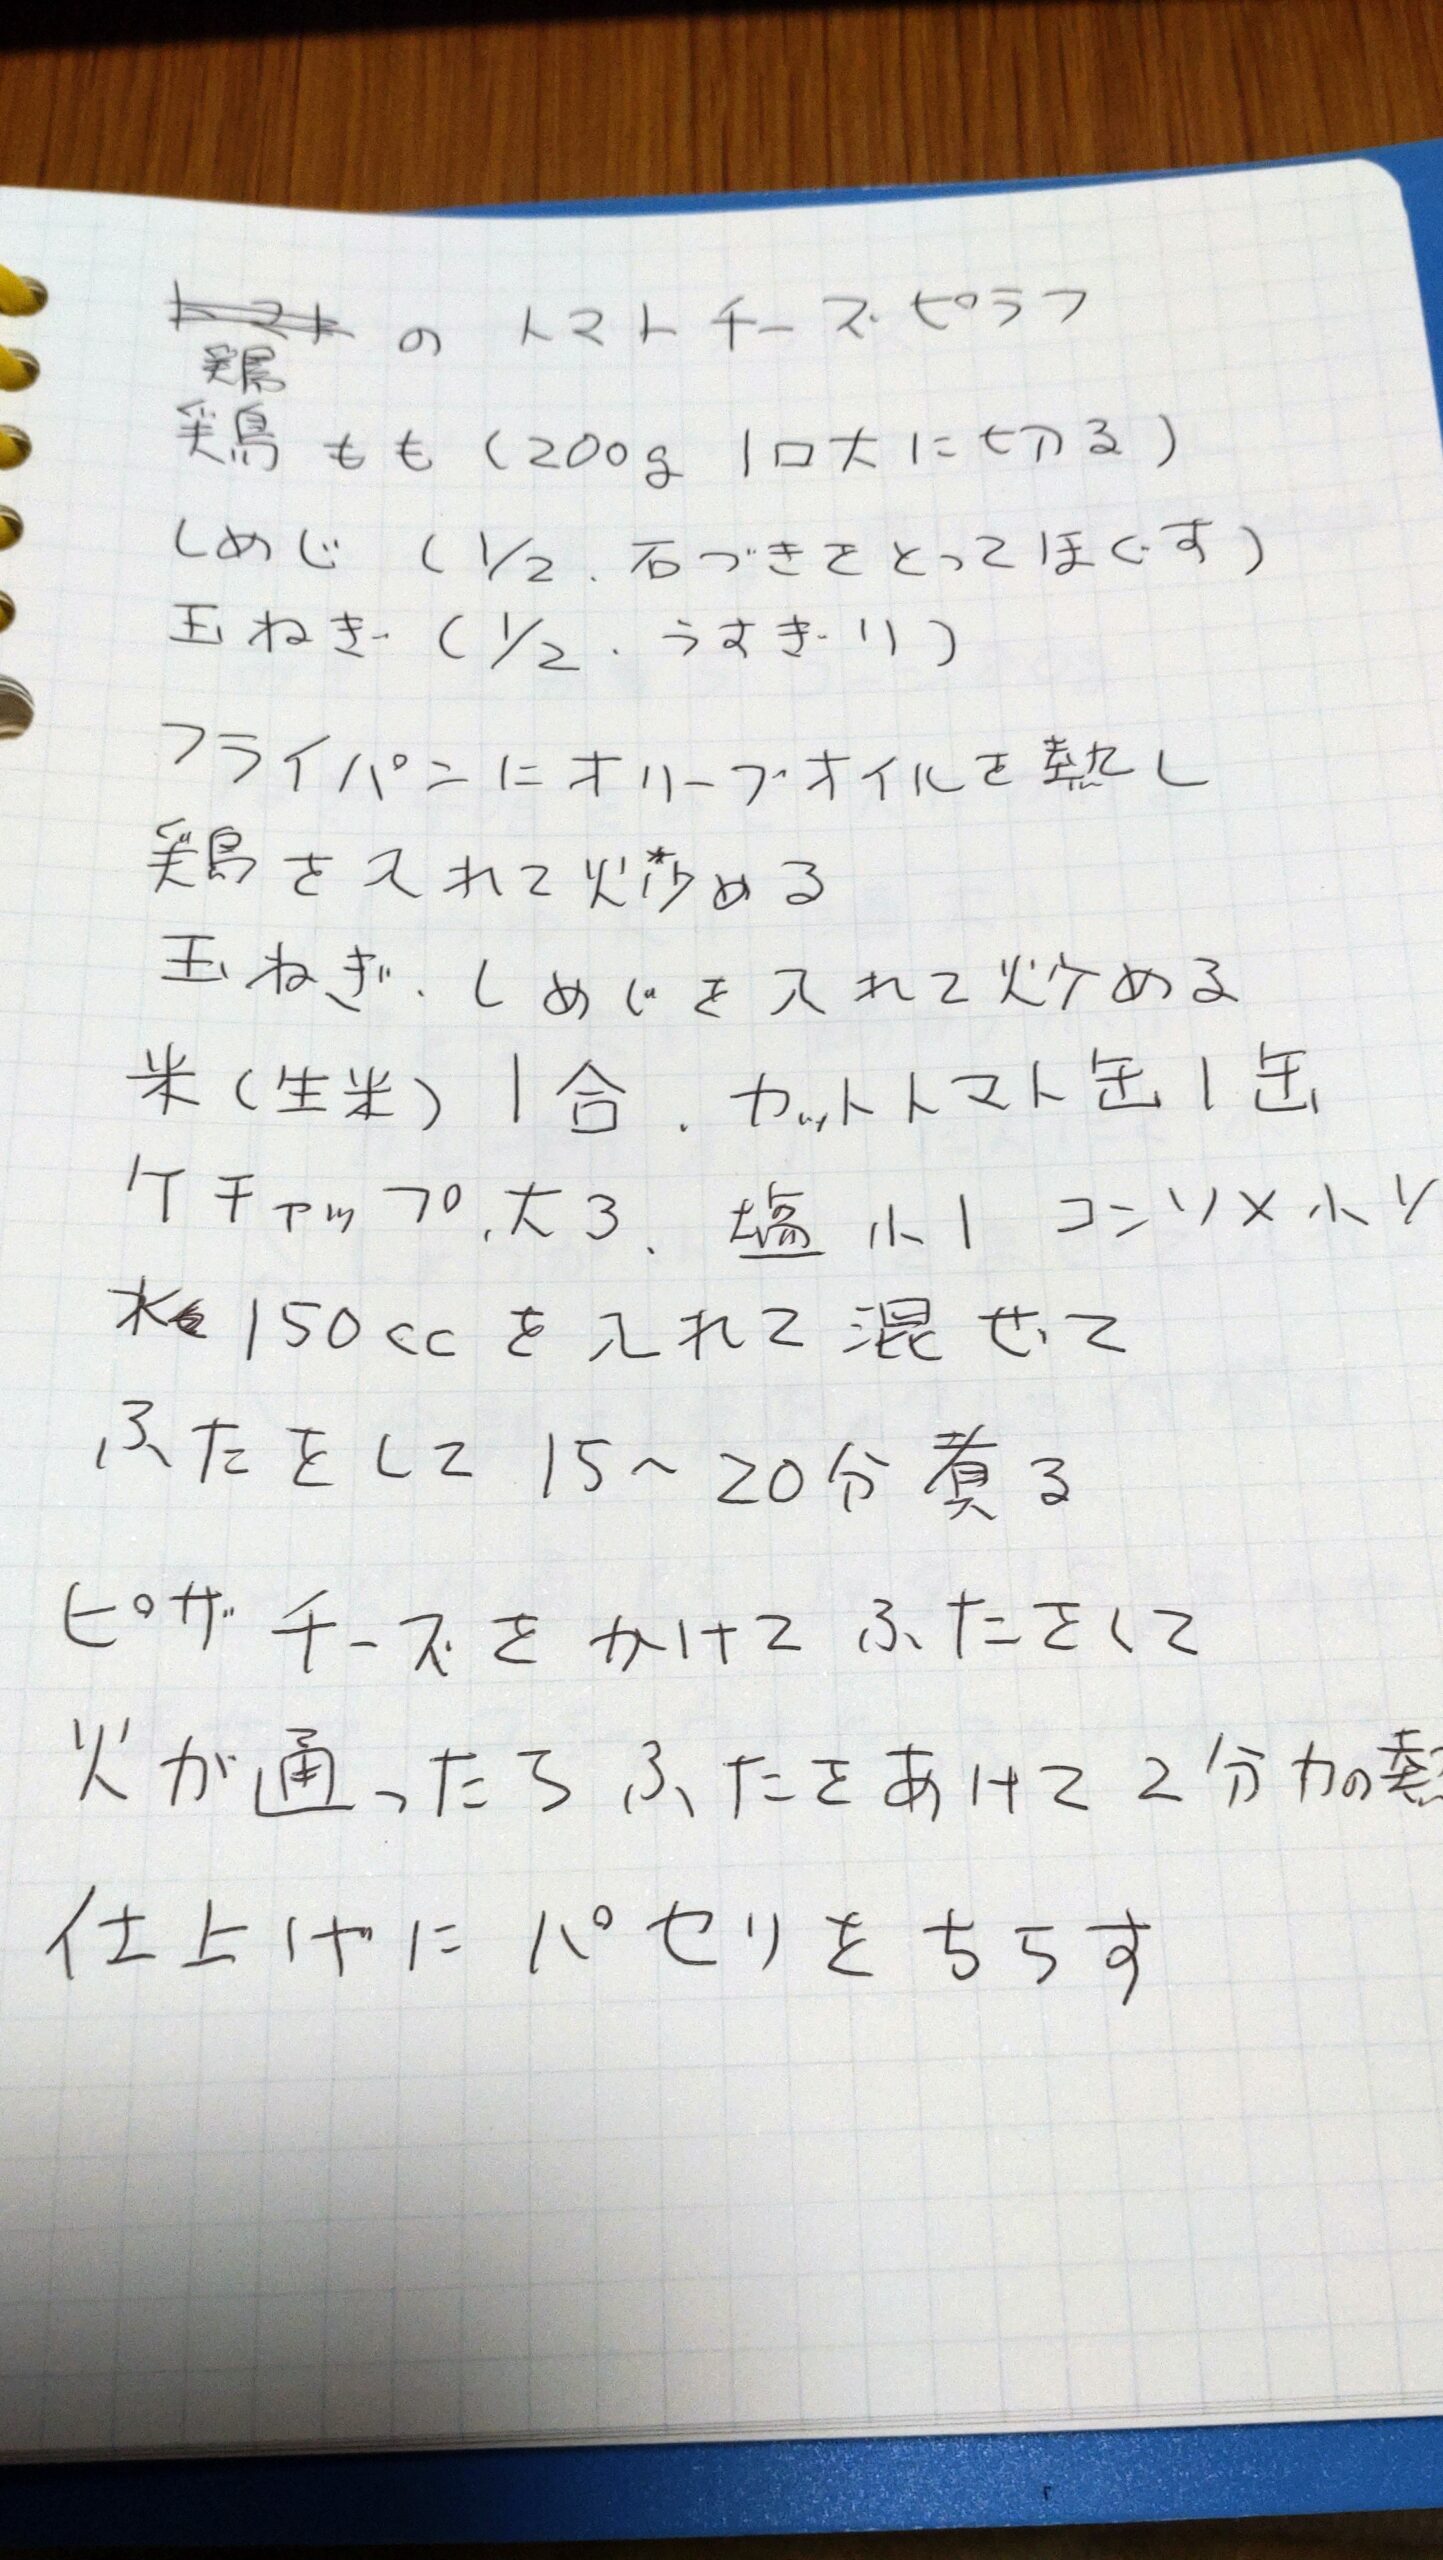 のトマトチーズピラフ
鶏
鶏もも(200g 1口大に切る)
しめじ(1/2、石づきをとってほぐす)
玉ねぎ(1/2、うすぎり)
フライパンにオリーブオイルを熱し
鶏を入れて炒める
玉ねぎ、しめじを入れて炒める
米(生米)1合、カットトマト缶1缶
ケチャップ、大3、塩小1 コンソメ小
水150ccを入れて混ぜて
ふたをして15〜20分煮る
ピザチーズをかけてふたをして
火が通ったらふたをあけて2分加熱
仕上げにパセリをちらす